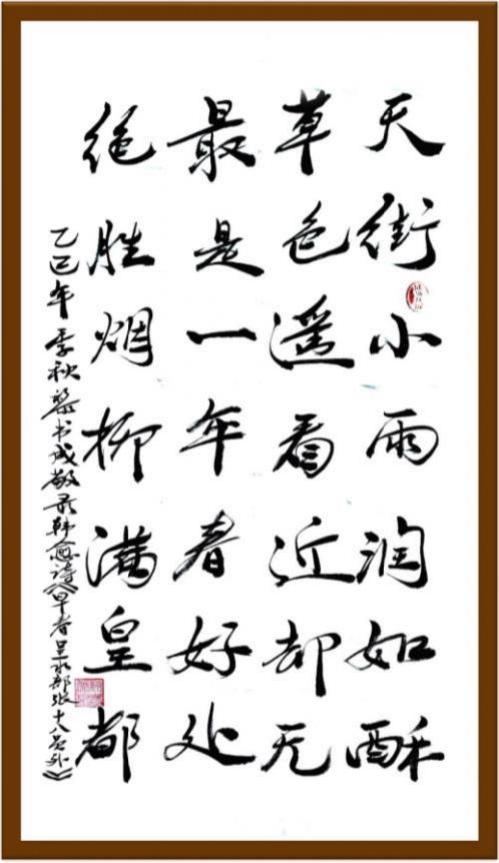 天街小雨润如酥
草色遥看近却无
最是一年春好处
绝胜烟柳满皇都
乙巳年季秋书成敬录韩愈诗《早春呈水部张十八员外》